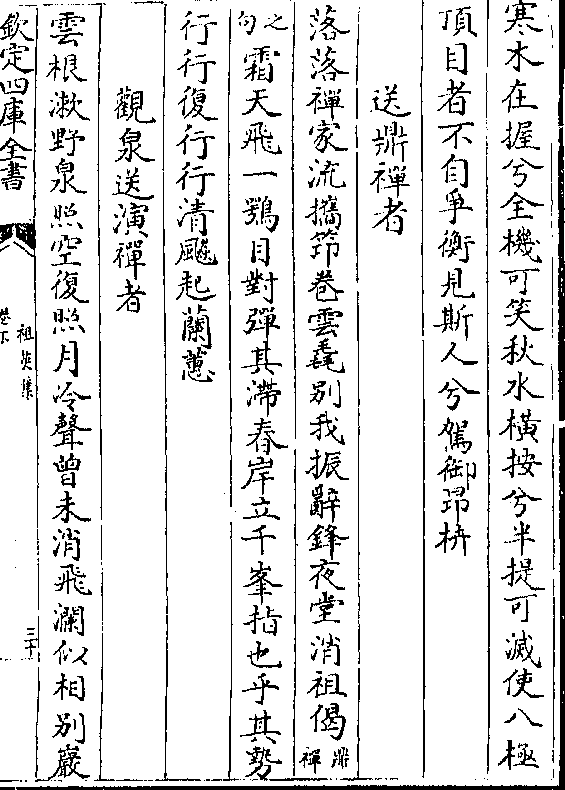 寒木在握兮全機可笑秋水橫按兮半提可滅使八極
頂目者不自爭衡見斯人兮駕御昻枿
送鼎禪者
落落禪家流攜筇卷雲毳別我振辭鋒夜堂消祖偈鼎禪
之句霜天飛一鶚目對彈其滯春岸立千峯指也乎其勢
行行復行行清飈起蘭蕙
觀泉送演禪者
雲根漱野泉照空復照月冷聲曾未消飛瀾似相別巖
欽定四庫全書
祖英集
卷下
三十